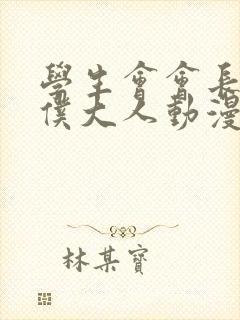 學生會會長
僕大人動漫
林某寶